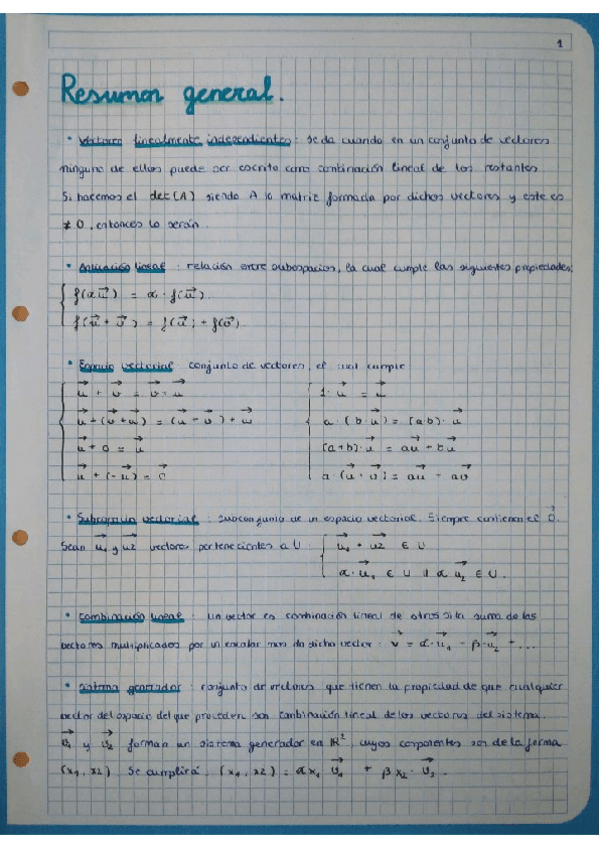 1
Resumen general.
• Vectores linealmente independientes: se da cuando en un conjunto de vectores
ninguno de ellos puede ser escrito como combinación lineal de los restantes
Si hacemos el det(A) siendo A la matriz formada por dichos vectores y este es
≠ 0, entonces lo serán.
• Aplicación lineal : relación entre subespacios, la cual cumple las siguientes propiedades:
f(α\vec{u}) = α · f(\vec{u}).
f(\vec{u} + \vec{v}) = f(\vec{u}) + f(\vec{v}).
• Espacio vectorial conjunto de vectores, el cual cumple
\vec{u} + \vec{v} = \vec{v} + \vec{u} 1 · \vec{u} = \vec{u}
\vec{u} + (\vec{v} + \vec{w}) = (\vec{u} + \vec{v}) + \vec{w} a · (b · \vec{u}) = (ab) · \vec{u}
\vec{u} + 0 = \vec{u} (a+b) · \vec{u} = a\vec{u} + b\vec{u}
\vec{u} + (-\vec{u}) = \vec{0} a (\vec{u} + \vec{v}) = a\vec{u} + a\vec{v}
• Subespacio vectorial : subconjunto de un espacio vectorial. Siempre contienen el \vec{0}.
Sean \vec{u_1} y \vec{u2} vectores pertenecientes a U : \vec{u_1} + \vec{u2} ∈ U
α · \vec{u_1} ∈ U α \vec{u_2} ∈ U.
• Combinación lineal : un vector es combinación lineal de otros si la suma de los
vectores multiplicados por un escalar nos da dicho vector : \vec{v} = α · \vec{u_1} + β · \vec{u_2} + ...
• Sistema generador : conjunto de vectores que tienen la propiedad de que cualquier
vector del espacio del que proceden son combinación lineal de los vectores del sistema.
\vec{v_1} y \vec{v_2} forman un sistema generador en ℝ², cuyos componentes son de la forma
(x1, x2). Se cumplirá, (x1, x2) = αx_1 \vec{v_1} + βx_2 · \vec{v_2}.